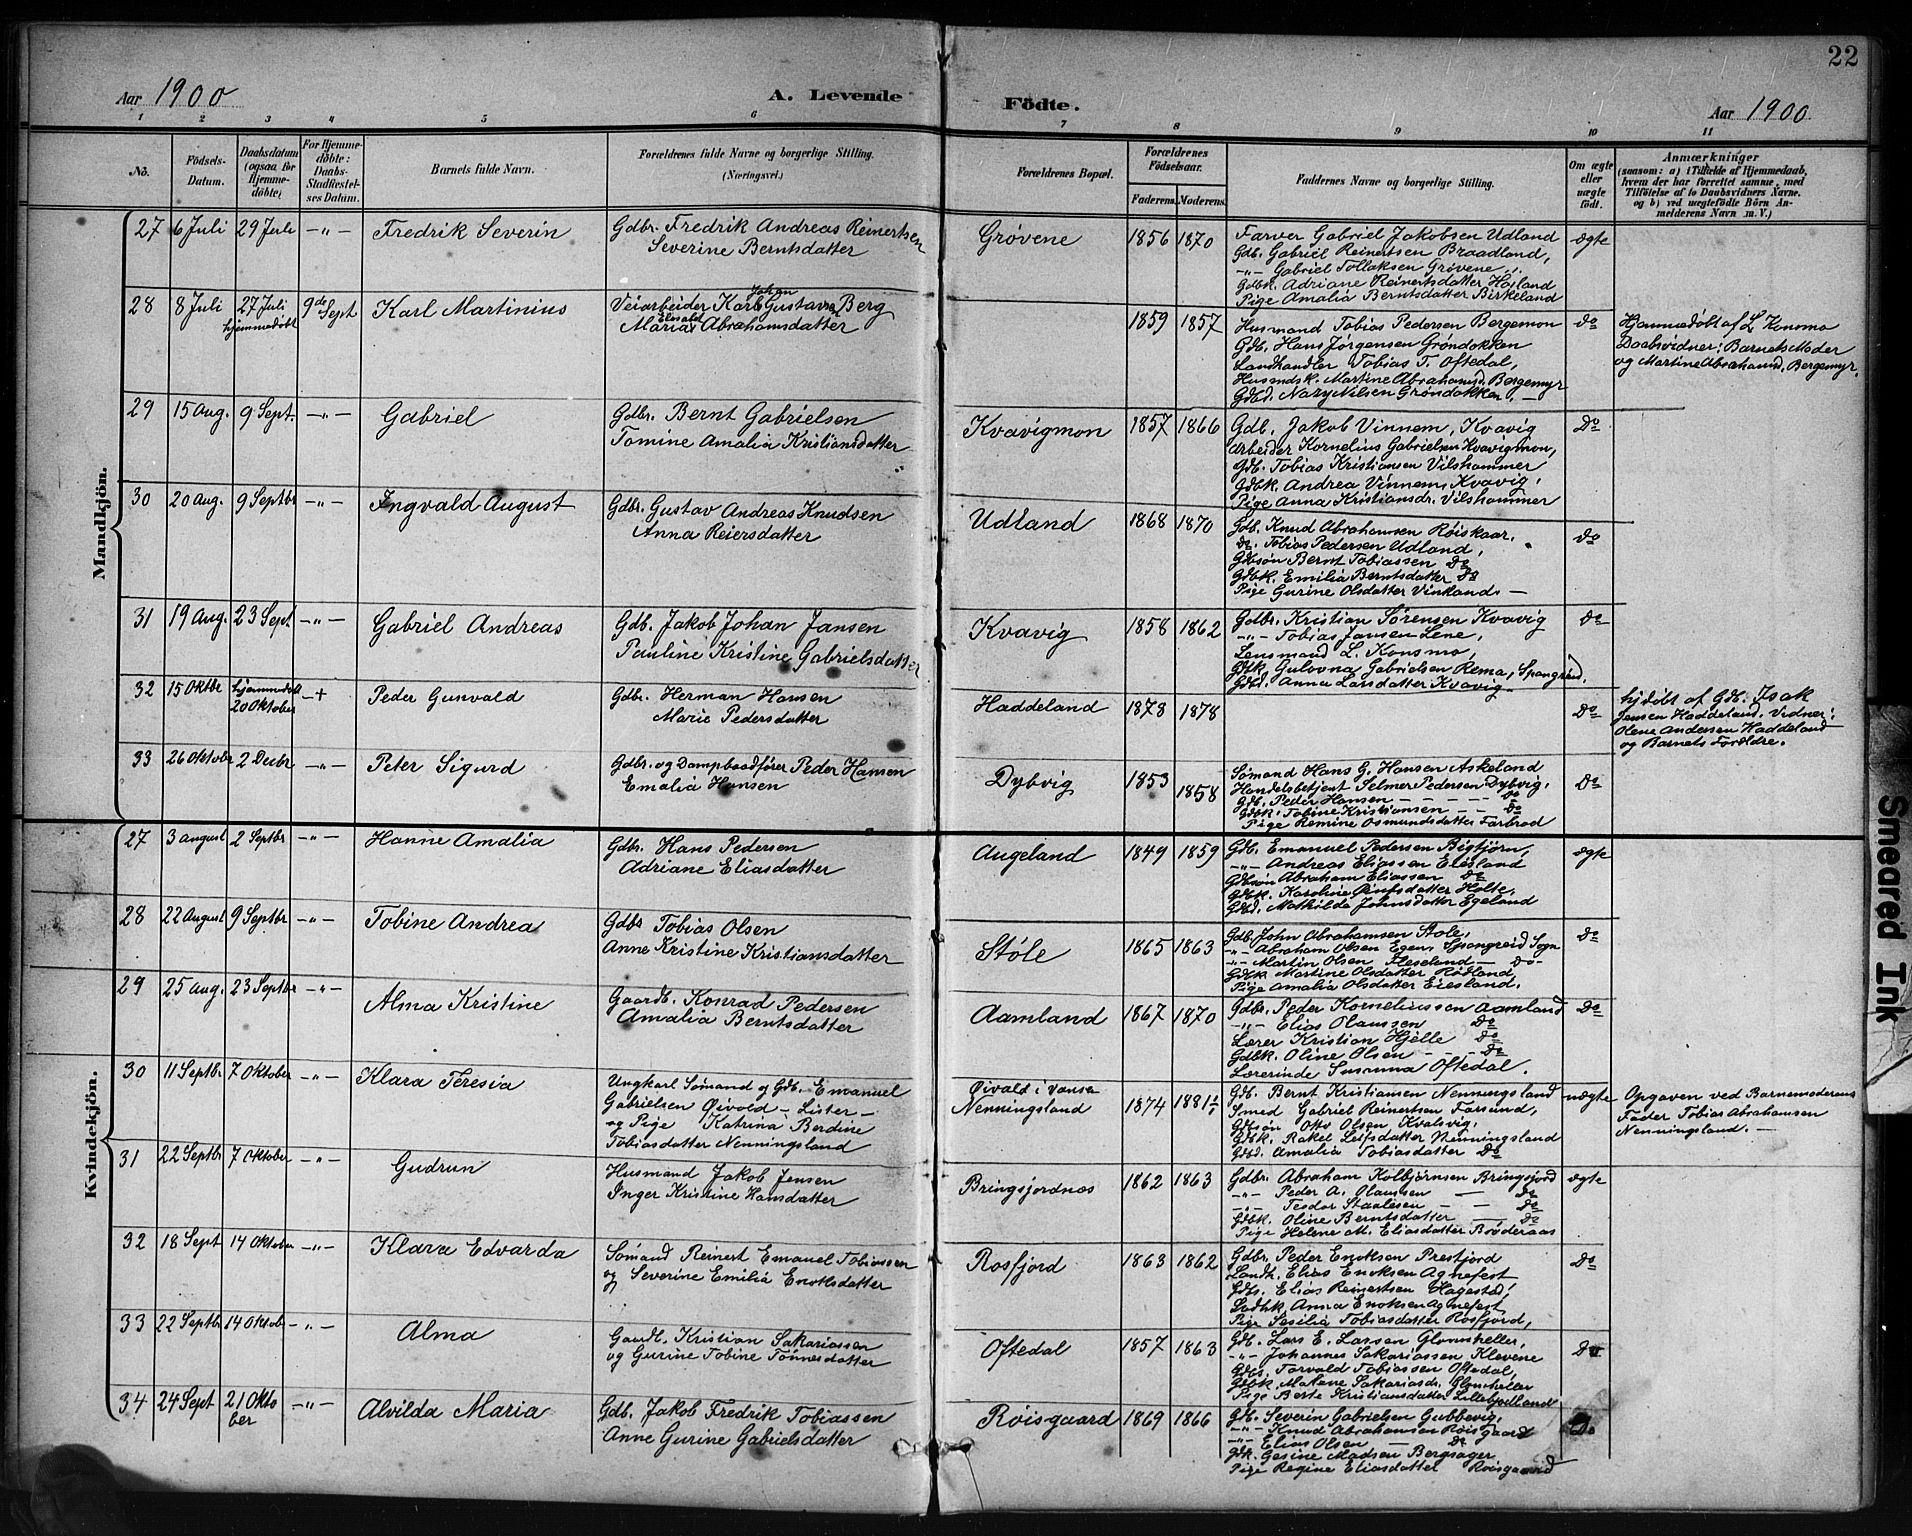 22
Aar 1900 A. Levende Födte. Aar 1900
1 2 3 4 5 6 7 8 9 10 11
No. Födsels-Datum. Daabsdatum (ogsaa for Hjemmedöbte) For Hjemmedöbte: Daabs-Stadfæstelses Datum. Barnets fulde Navn. Forældrenes fulde Navne og borgerlige Stilling. (Næringsvei.) Forældrenes Bopæl. Forældrenes Fødselsaar. Faderens. Moderens. Faddernes Navne og borgerlige Stilling. Om ægte eller uægte födt. Anmærkninger (saasom: a) i Tilfælde af Hjemmedaab, hvem der har forrettet samme, med Tilföielse af to Daabsvidners Navne. og b) ved uægtefödte Börn Anmelderens Navn m. V.)
Mandkjön.
27 6 Juli 29 Juli -"- Fredrik Severin Gdbr. Fredrik Andreas Reinertsen Grövene 1856 1870 Farver Gabriel Jakobsen Udland ægte
Severine Berntsdatter Gdb. Gabriel Reinertsen Braadland,
-"- Gabriel Tollaksen Grövene
Gdbk. Adriane Reinertsdatter Høiland
Pige Amalia Berntsdatter Birkeland
28 8 Juli 27 Juli hjemmedöbt 9de Sept Karl Martinius Veiarbeider Karl Johan Gustavs. Berg 1859 1857 Husmand Tobias Pedersen Bergemon do Hjemmedöbt af L Konsmo
Maria Abrahamsdatter Gdb. Hans Jörgensen Gröndokken Daabsvidner: Barnets Moder
Landhandler Tobias T. Oftedal, og Martine Abrahamsd. Bergemyr.
Husmdsk. Martine Abrahamsd. Bergemyr
Nilsen Gröndokken
29 15 Aug. 9 Sept. -"- Gabriel Gdbr. Bernt Gabrielsen Kvavigmon 1857 1866 Gdb. Jakob Vinnem, Kvavig Do
Tomine Amalia Kristiansdatter arbeider Kornelius Gabrielsen Kvavigmon,
Gdb. Tobias Kristiansen Vilshammer
Gdbk. Andrea Vinnem, Kvavig,
Pige Anna Kristiansdr. Vilshammer
30 20 Aug. 9 Septbr -"- Ingvald August Gdbr. Gustav Andreas Knudsen Udland 1868 1870 Gdb. Knud Abrahamsen Röiskaar. do
Anna Reiersdatter Do. Tobias Pedersen Udland,
Gdbsön Bernt Tobiassen Do
Gdbk. Emilia Berntsdatter Do
Pige Gurine Olsdatter Vinland -
31 19 Aug. 23 Sept -"- Gabriel Andreas Gdb. Jakob Johan Jansen Kvavig 1858 1862 Gdbr. Kristian Sörensen Kvavig Do
Pauline Kristine Gabrielsdatter -"- Tobias Jansen Lene,
Lensmand L. Konsmo,
Gdbk. Gulovna Gabrielsen Rema, Spangreid.
Gdbd. Anna Larsdatter Kvavig
32 15 Oktbr hjemmedöbt 20 Oktober -+ Peder Gunvald Gdbr. Herman Hansen Haddeland 1873 1878 Do hjdöbt af Gdb. Isak
Marie Pedersdatter Jensen Haddeland, Vidner:
Olene Andersen Haddeland
og Barnets Forældre.
33 26 Oktober 2 Decbr -"- Peter Sigurd Gdbr. og Dampbaadförer Peder Hansen Dybvig 1853 1858 Sömand Hans G. Hansen Askeland Do
Emalia Hansen Handelsbetjent Selmer Pedersen Dybvig,
Gdb. Peder Hansen - - - - Do
Gdbk. Tobine Kristiansen - - Do
Pige Remine Osmundsdatter Farbrod
Kvindekjön.
27 3 august 2 Septbr -"- Hanne Amalia Gdbr. Hans Pedersen Augeland 1849 1859 Gdb. Emanuel Pedersen Bigtjörn, ægte
Adriane Eliasdatter -"- Andreas Eliassen Eiesland
Gdbsön Abraham Eliassen Do
Gdbk. Karoline datter Holte,
Gdbd. Mathilda Johnsdatter Egeland
28 22 August 9 Septbr -"- Tobine Andrea Gdbr Tobias Olsen Stöle 1865 1863 Gdb. John Abrahamsen Stöle, Do
Anne Kristine Kristiansdatter -"- Abraham Olsen Egen, Spangreid Sogn
-"- Martin Olsen - Do -
Gdbk. Martine Olsdatter Rödland,
Pige Amalia Olsdatter Eiesland.
29 25 Aug. 23 Septbr -"- Alma Kristine Gaardb. Konrad Pedersen Aamland 1867 1870 Gdbr. Peder Korneliussen Aamland Do
Amalia Berntsdatter -"- Elias Olaussen Do
Lærer Kristian Hjelle Do
Gdbk. Oline Olsen - - Do
Lærerinde Susanna Oftedal.
30 11 Septbr 7 Oktober -"- Klara Teresia Ungkarl Sömand og Gdb. Emanuel Öivold i Vanse 1874 1881 Gdb. Bernt Kristiansen Nenningsland uægte Opgaven ved Barnemoderens
Gabrielsen Öivold - Lister - Nenningsland Smed Gabriel Reinertsen Farsund, Fader Tobias Abrahamsen
og Pige Katrina Berdine Gdbsön Otto Olsen Kvalsvig, Nenningsland. -
Tobiasdatter Nenningsland Gdbk. Rakel Leifsdatter Nenningsland
Gdbd. Amalia Tobiasdatter Do
31 22 Septbr 7 Oktober -"- Gudrun Husmand Jakob Jensen Bringsjordnes 1862 1863 Gdbr. Abraham Kolbjörnsen Bringsjord ægte
Inger Kristine Hansdatter -"- Peder A. Olaussen - Do
-"- Tesdor Staalesen - - Do
Gdbk. Oline Berntsdatter - Do
Pige Helene M. Eliasdatter Bröderaas
32 18 Sept 14 Oktober -"- Klara Edvarda Sömand Reinert Emanuel Tobiassen Rosfjord 1863 1862 Gdbr. Peder Enoksen Prestjord Do
og Severine Emilia Enoksdatter Landh. Elias Enoksen Agnefest,
Gdb. Elias Reinertsen Hagestad,
Ldhk. Anna Enoksen Agnefest,
Pige Sesilia Tobiasdatter Rosfjord,
33 22 Septbr 14 Oktob -"- Alma Gaardb. Kristian Sakariassen Oftedal 1857 1863 Gdb. Lars E. Larsen Glomheller, Do
og Gurine Tobine Tönnesdatter -"- Johannes Sakariassen Klevene
Gdb. Torvald Tobiassen Oftedal,
Gdbk. Malene Sakariasdr. Glomheller
Pige Berte Kristiansdatter
34 24 Sept 21 Oktober -"- Alvilda Maria Gdb. Jakob Fredrik Tobiassen Röisgaard 1869 1866 Gdb. Severin Gabrielsen Gubbevig, Do
Anne Gurine Gabrielsdatter -"- Knud Abrahamsen Röisgaard
-"- Elias Olsen - Do
Gdk. Gesine Madsen Bergsager
Pige Regine Eliasdattel Röisgaard
Smeared Ink